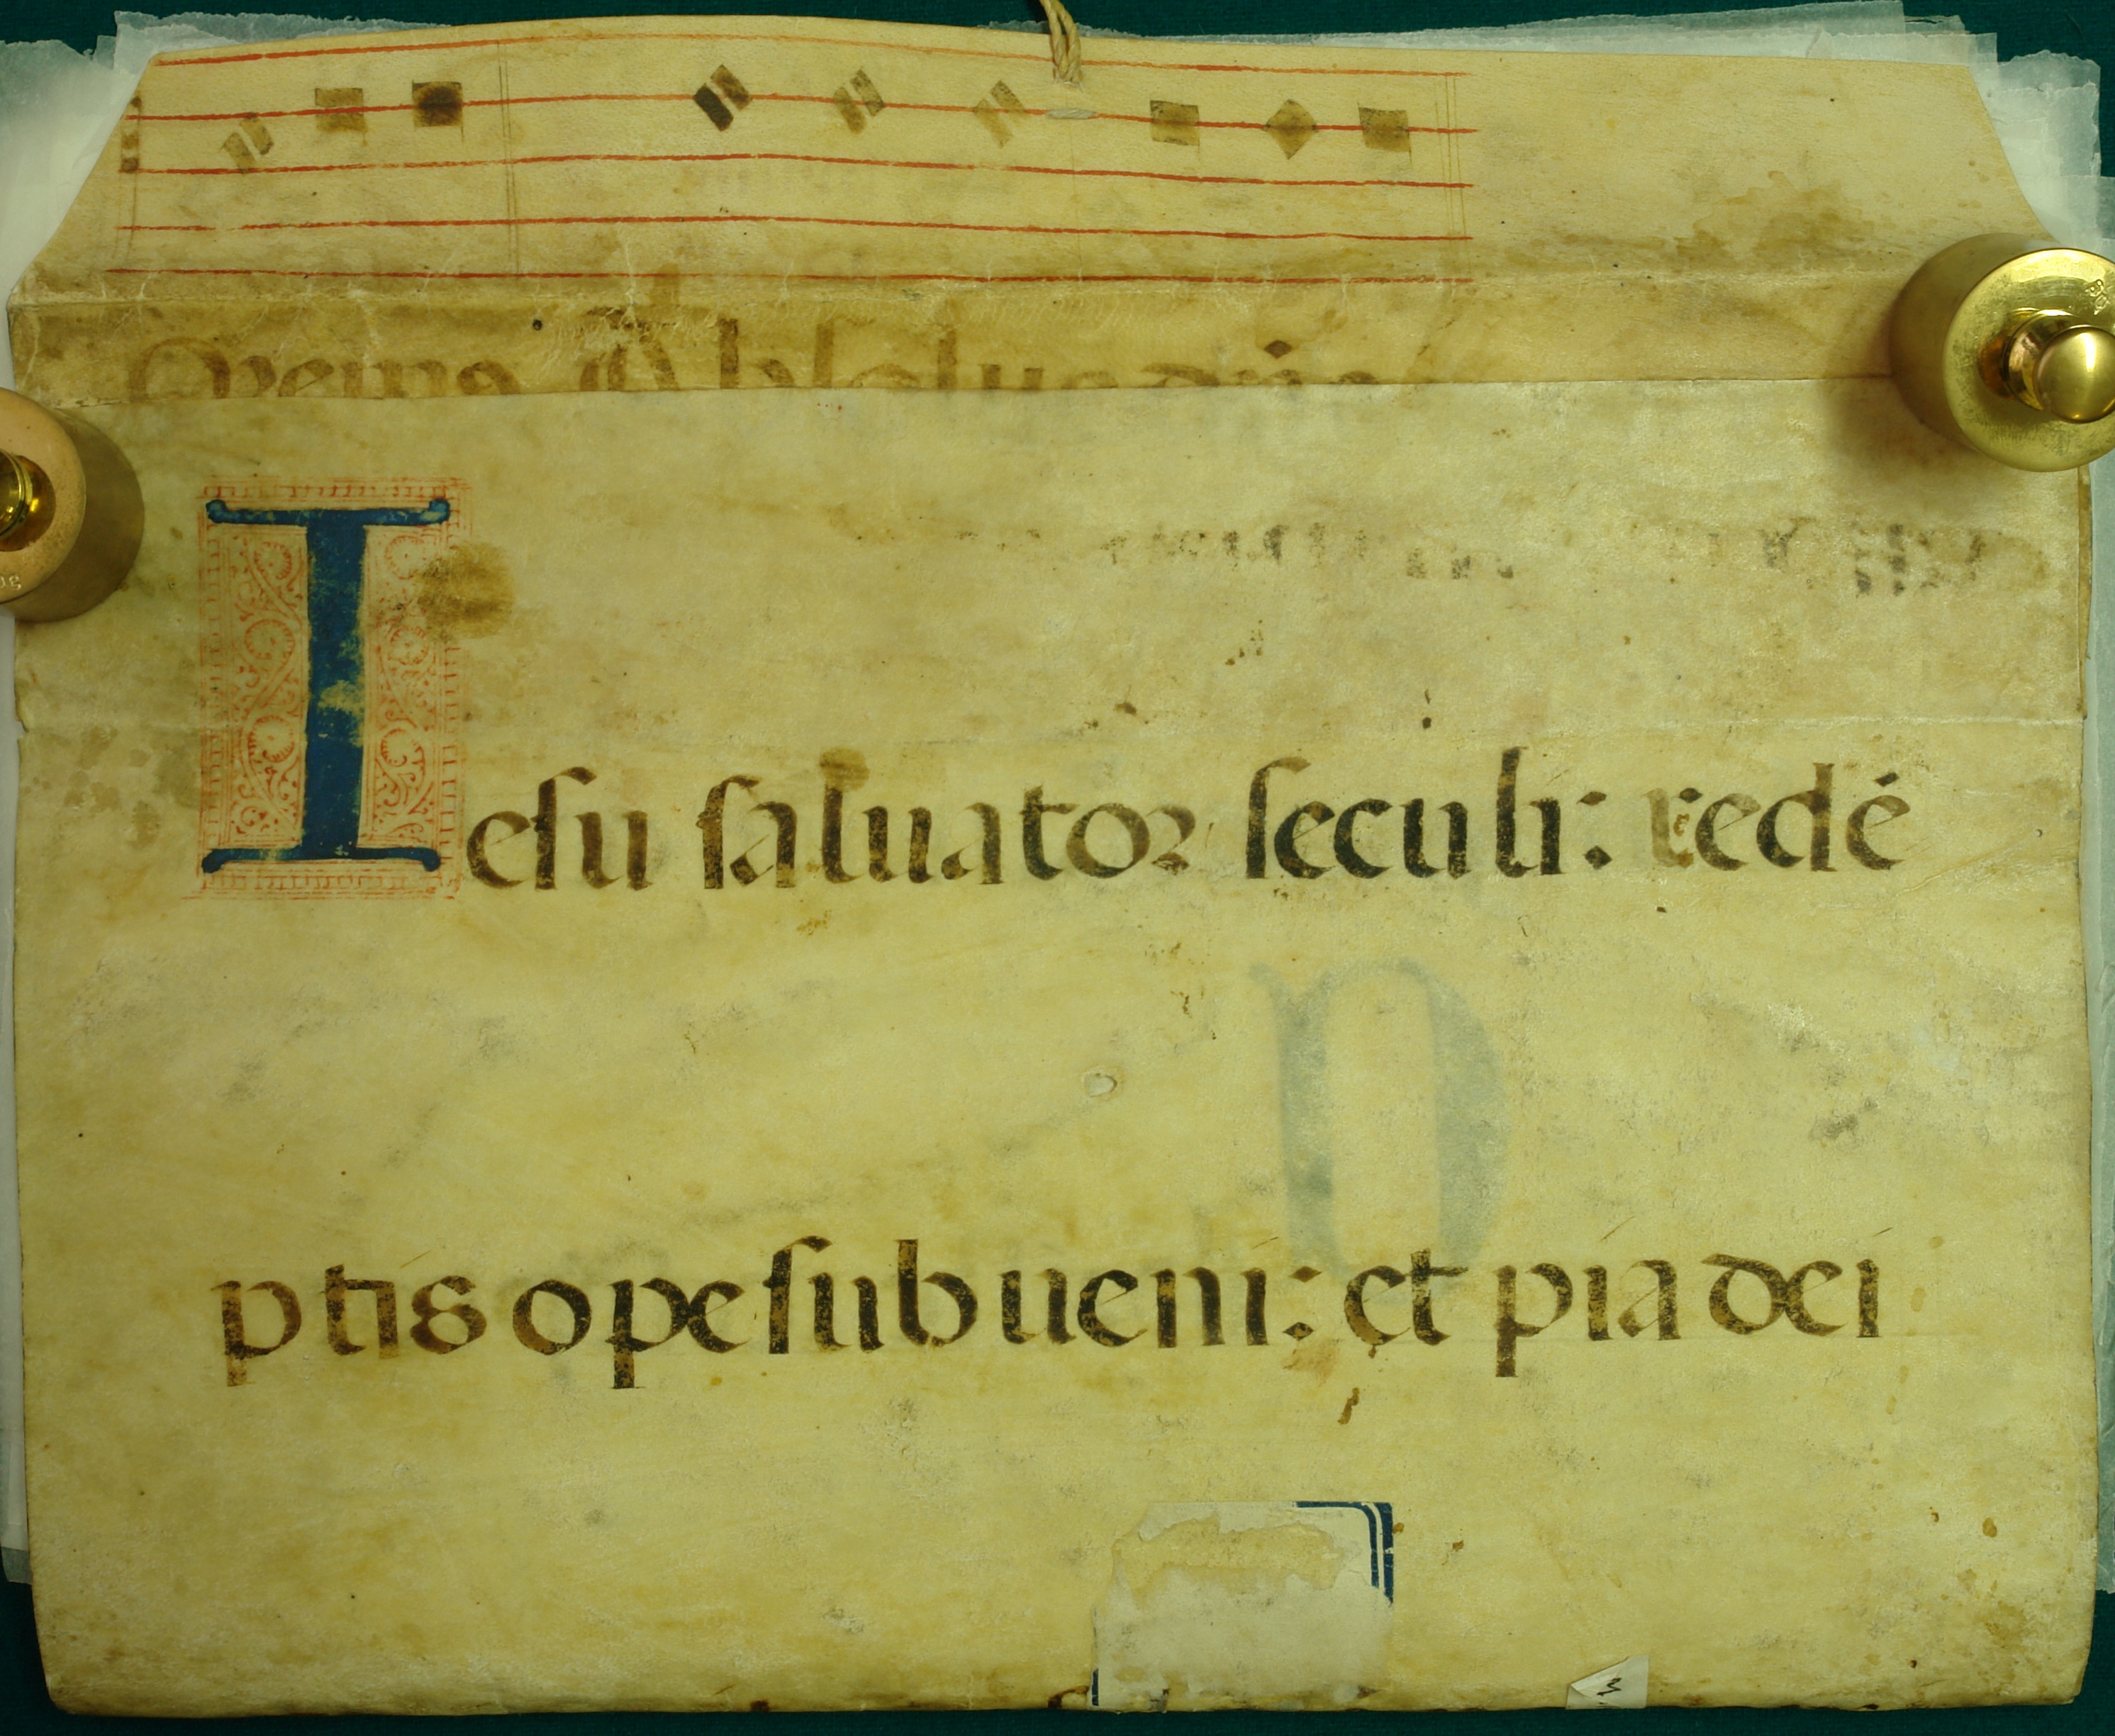 Iesu saluator seculi: redé
ptis ope subueni: et pia dei